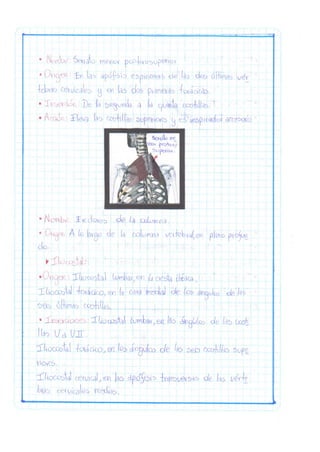 • Nombre: Serrato menor posterosuperior.
• Origen: En las apófisis espinosas de las dos últimas ver
tebras cervicales y en las dos primeras torácicas.
• Inserción: De la segunda a la quinta costillas.
• Acción: Eleva las costillas superiores y es inspirador accesorio
Serrato me
nor postero
superior
• Nombre: Erectores de la columna.
• Origen: A lo largo de la columna vertebral en plano profun
do.
▸ Iliocostal:
• Origen: Iliocostal lumbar, en la cresta ilíaca.
Iliocostal torácico, en la cara medial de los ángulos de las
seis últimas costillas.
• Inserciones: Iliocostal lumbar, en los ángulos de las cost
llas V a VII
Iliocostal torácico, en los ángulos de las seis costillas supe
riores.
Iliocostal cervical, en las apófisis transversas de las vérte
bras cervicales medias.